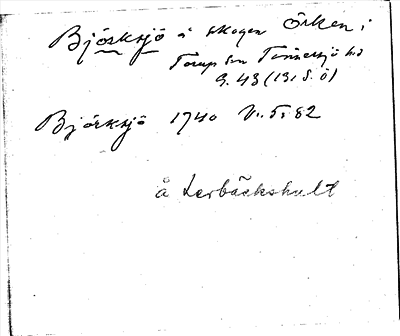 Björksjö å skogen Örken i
Torup sn Tönnersjö hd
G. 43 (131 S. Ö)
Björksjö 1740 V. 5: 82
å Lerbäckshult